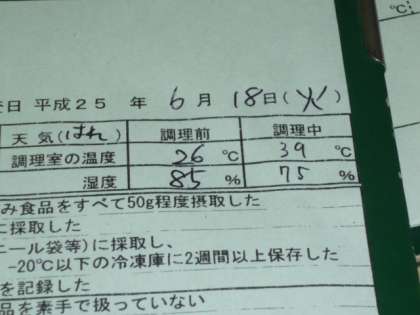 ℃
日 平成25 年 6 月 18日(火)
天気(はれ) 調理前 調理中
調理室の温度 26 ℃ 39 ℃
湿度 85 % 75 %
み食品をすべて50g程度摂取した
に採取した
ニール袋等)に採取し、
-20℃以下の冷凍庫に2週間以上保存した
を記録した
品を素手で扱っていない